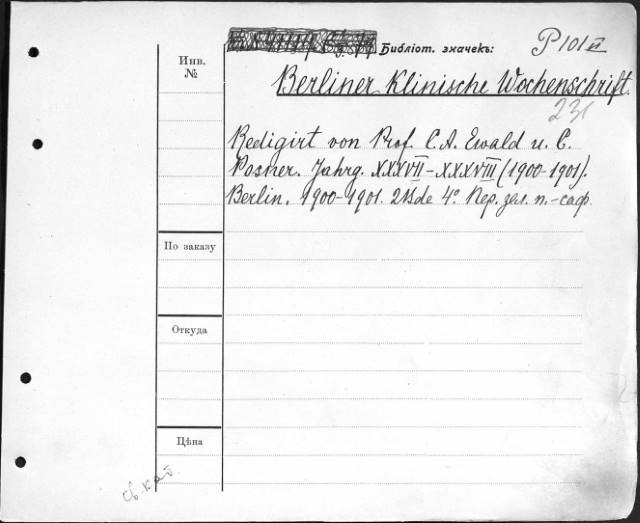 Библіот. значекъ: P 101 VI
Инв.
№
Berliner Klinische Wochenschrift.
231
Redigirt von Prof. C.A. Ewald u. C.
Posner. Jahrg. XXXVII–XXXVIII (1900–1901).
Berlin. 1900–1901. 2 Bde 4° Пер. зел. п.-саф.
По заказу
Откуда
Цѣна
св. кат.